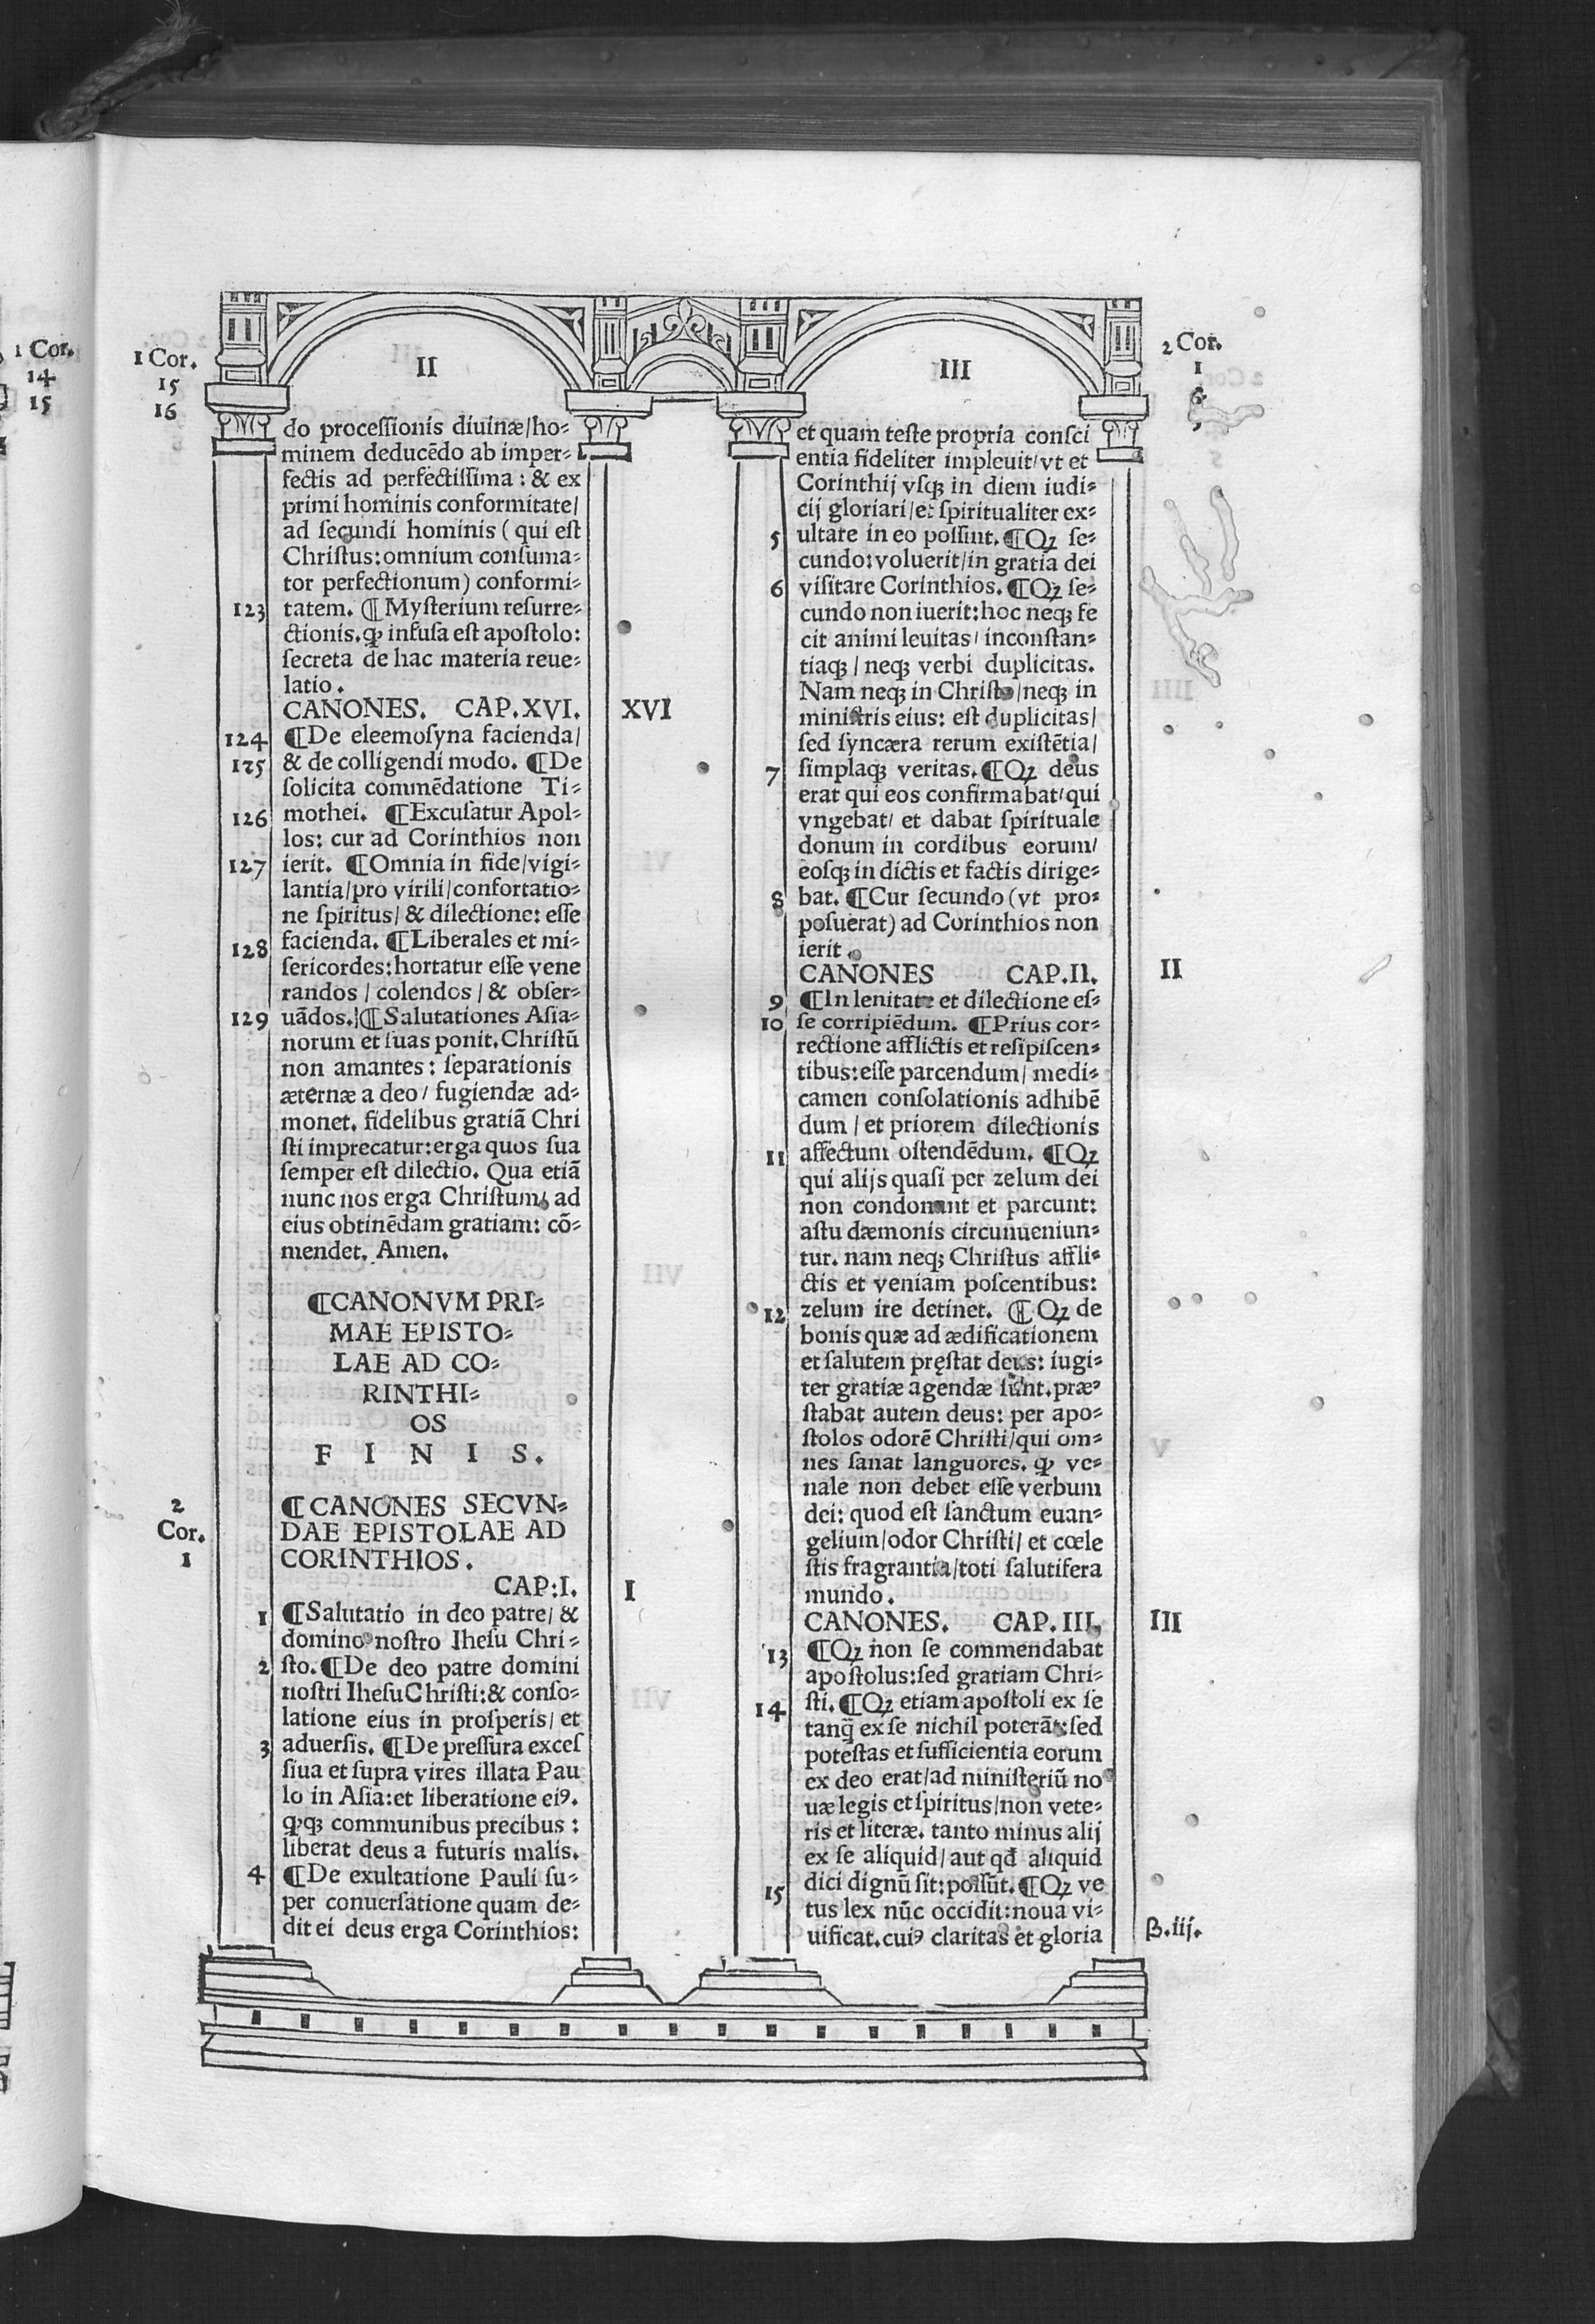 1 Cor.
14
15
1 Cor.
15
16
II
do processionis diuinæ/ho=
minem deducēdo ab imper=
fectis ad perfectissima: & ex
primi hominis conformitate/
ad secundi hominis ( qui est
Christus: omnium consuma=
tor perfectionum) conformi=
123 tatem. ¶ Mysterium resurre=
ctionis. ꝙ infusa est apostolo:
secreta de hac materia reue=
latio.
CANONES. CAP.XVI. XVI
124 ¶De eleemosyna facienda/
125 & de colligendi modo. ¶De
solicita commēdatione Ti=
126 mothei. ¶Excusatur Apol=
los: cur ad Corinthios non
127 ierit. ¶Omnia in fide/vigi=
lantia/pro virili/confortatio=
ne spiritus/ & dilectione: esse
128 facienda. ¶Liberales et mi=
sericordes: hortatur esse vene
randos / colendos / & obser=
129 uādos. ¶Salutationes Asia=
norum et suas ponit. Christū
non amantes: separationis
æternæ a deo/ fugiendæ ad=
monet. fidelibus gratiā Chri
sti imprecatur: erga quos sua
semper est dilectio. Qua etiā
nunc nos erga Christum, ad
eius obtinēdam gratiam: cō=
mendet. Amen.
¶CANONVM PRI=
MAE EPISTO=
LAE AD CO=
RINTHI=
OS
F I N I S.
2
Cor.
1
¶CANONES SECVN=
DAE EPISTOLAE AD
CORINTHIOS.
CAP:I. I
1 ¶Salutatio in deo patre/ &
domino nostro Ihesu Chri=
2 sto. ¶De deo patre domini
nostri Ihesu Christi: & conso=
latione eius in prosperis/ et
3 aduersis. ¶De pressura exces
siua et supra vires illata Pau
lo in Asia: et liberatione eiꝰ.
ꝙqꝫ communibus precibus:
liberat deus a futuris malis.
4 ¶De exultatione Pauli su=
per conuersatione quam de=
dit ei deus erga Corinthios:
2 Cor.
1
III
et quam teste propria consci
entia fideliter impleuit/vt et
Corinthij vsqꝫ in diem iudi=
cij gloriari/et spiritualiter ex=
5 ultare in eo possint. ¶Qꝫ se=
cundo: voluerit/in gratia dei
6 visitare Corinthios. ¶Qꝫ se=
cundo non iuerit: hoc neqꝫ fe
cit animi leuitas/ inconstan=
tiaqꝫ / neqꝫ verbi duplicitas.
Nam neqꝫ in Christo/neqꝫ in
ministris eius: est duplicitas/
sed syncæra rerum existētia/
7 simplaqꝫ veritas. ¶Qꝫ deus
erat qui eos confirmabat/qui
vngebat/ et dabat spirituale
donum in cordibus eorum/
eosqꝫ in dictis et factis dirige=
8 bat. ¶Cur secundo (vt pro=
posuerat) ad Corinthios non
ierit.
CANONES CAP.II. II
9 ¶In lenitate et dilectione es=
10 se corripiēdum. ¶Prius cor=
rectione afflictis et resipiscen=
tibus: esse parcendum/ medi=
camen consolationis adhibē
dum / et priorem dilectionis
11 affectum ostendēdum. ¶Qꝫ
qui alijs quasi per zelum dei
non condonant et parcunt:
astu dæmonis circunueniun=
tur. nam neqꝫ Christus affli=
ctis et veniam poscentibus:
12 zelum ire detinet. ¶ Qꝫ de
bonis quæ ad ædificationem
et salutem pręstat deus: iugi=
ter gratiæ agendæ sunt. præ=
stabat autem deus: per apo=
stolos odorē Christi/qui om=
nes sanat languores. ꝙ ve=
nale non debet esse verbum
dei: quod est sanctum euan=
gelium/odor Christi/ et cœle
stis fragrantia/toti salutifera
mundo.
CANONES. CAP. III. III
13 ¶Qꝫ non se commendabat
apostolus: sed gratiam Chri=
14 sti. ¶Qꝫ etiam apostoli ex se
tanq̃ ex se nichil poterāt: sed
potestas et sufficientia eorum
ex deo erat/ad ministeriū no
uæ legis et spiritus/non vete=
ris et literæ. tanto minus alij
ex se aliquid/ aut qđ aliquid
15 dici dignū sit: possūt. ¶Qꝫ ve
tus lex nūc occidit: noua vi=
uificat. cuiꝰ claritas et gloria
β.iij.